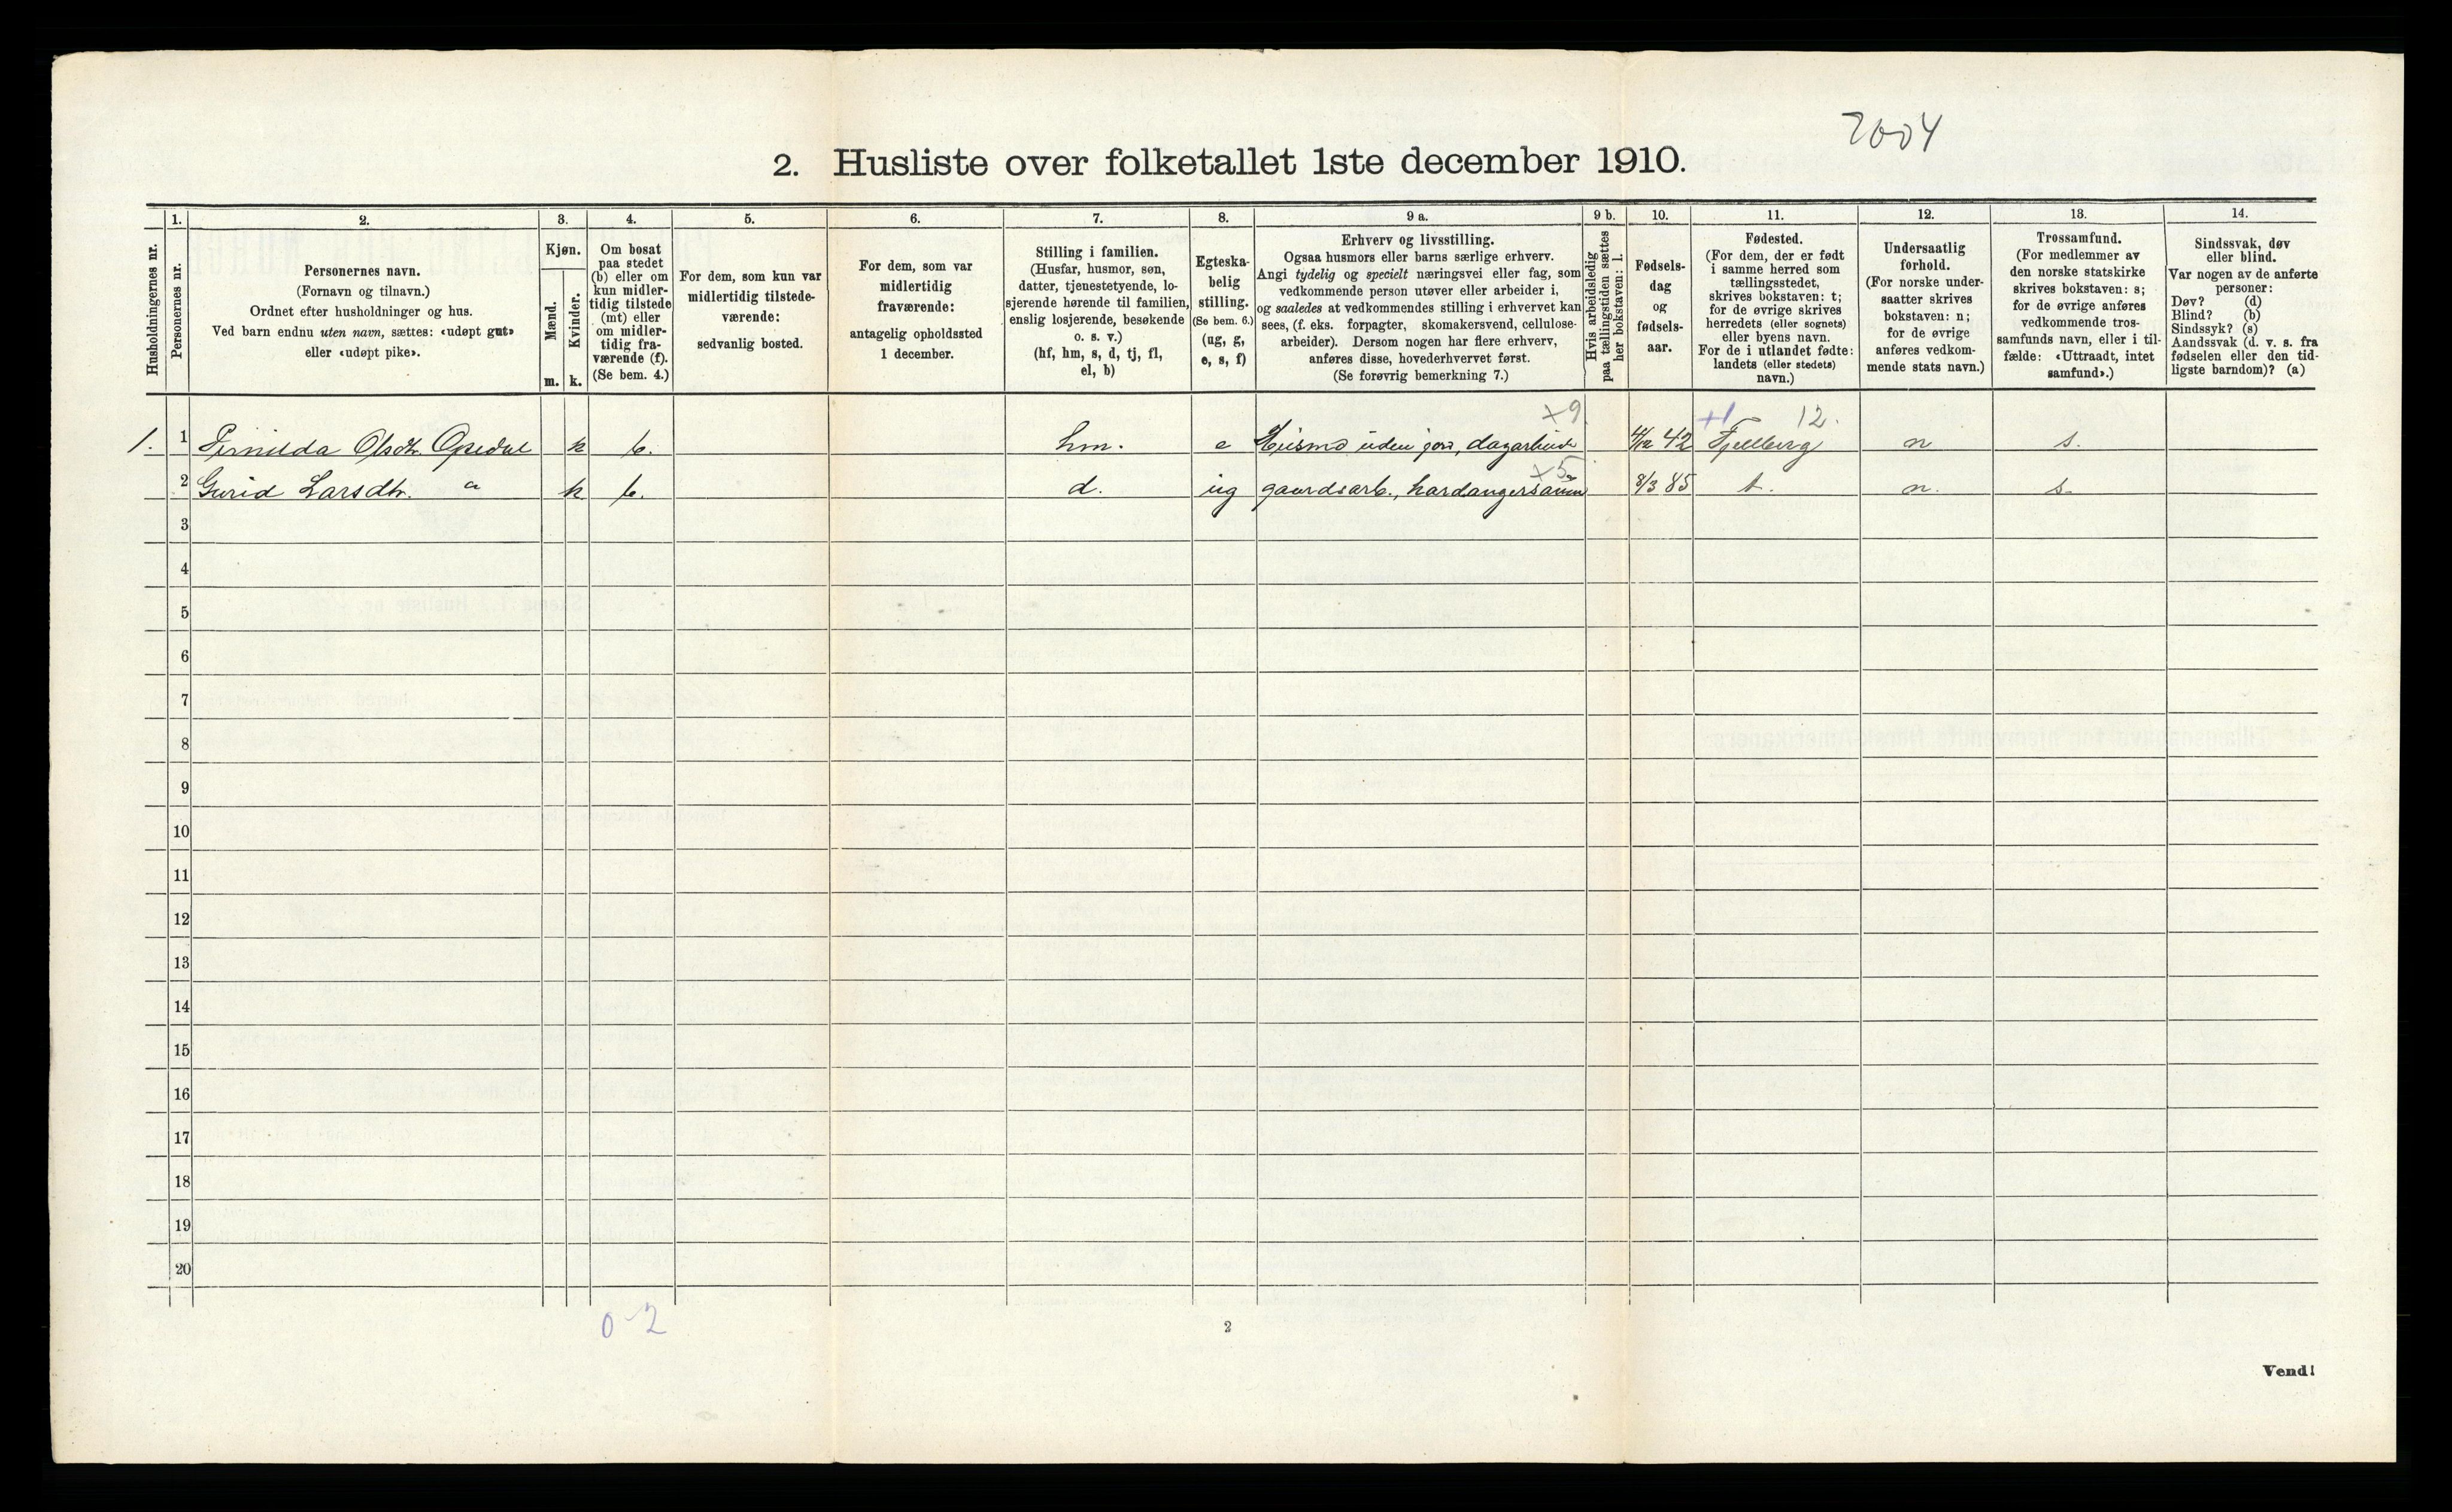 2004
2. Husliste over folketallet 1ste december 1910.
Husholdningernes nr.
1.
Personernes nr.
2.
Personernes navn.
(Fornavn og tilnavn.)
Ordnet efter husholdninger og hus.
Ved barn endnu uten navn, sættes: «udøpt gut»
eller «udøpt pike».
3.
Kjøn.
Mænd.
m.
Kvinder.
k.
4.
Om bosat
paa stedet
(b) eller om
kun midler-
tidig tilstede
(mt) eller
om midler-
tidig fra-
værende (f).
(Se bem. 4.)
5.
For dem, som kun var
midlertidig tilstede-
værende:
sedvanlig bosted.
6.
For dem, som var
midlertidig
fraværende:
antagelig opholdssted
1 december.
7.
Stilling i familien.
(Husfar, husmor, søn,
datter, tjenestetyende, lo-
sjerende hørende til familien,
enslig losjerende, besøkende
o. s. v.)
(hf, hm, s, d, tj, fl,
el, b)
8.
Egteska-
belig
stilling.
(Se bem. 6.)
(ug, g,
e, s, f)
9 a.
Erhverv og livsstilling.
Ogsaa husmors eller barns særlige erhverv.
Angi tydelig og specielt næringsvei eller fag, som
vedkommende person utøver eller arbeider i,
og saaledes at vedkommendes stilling i erhvervet kan
sees, (f. eks. forpagter, skomakersvend, cellulose-
arbeider). Dersom nogen har flere erhverv,
anføres disse, hovederhvervet først.
(Se forøvrig bemerkning 7.)
9 b.
Hvis arbeidsledig
paa tællingstiden sættes
her bokstaven: l.
10.
Fødsels-
dag
og
fødsels-
aar.
11.
Fødested.
(For dem, der er født
i samme herred som
tællingsstedet,
skrives bokstaven: t;
for de øvrige skrives
herredets (eller sognets)
eller byens navn.
For de i utlandet fødte:
landets (eller stedets)
navn.)
12.
Undersaatlig
forhold.
(For norske under-
saatter skrives
bokstaven: n;
for de øvrige
anføres vedkom-
mende stats navn.)
13.
Trossamfund.
(For medlemmer av
den norske statskirke
skrives bokstaven: s;
for de øvrige anføres
vedkommende tros-
samfunds navn, eller i til-
fælde: «Uttraadt, intet
samfund».)
14.
Sindssvak, døv
eller blind.
Var nogen av de anførte
personer:
Døv? (d)
Blind? (b)
Sindssyk? (s)
Aandssvak (d. v. s. fra
fødselen eller den tid-
ligste barndom)? (a)
×9 +1 12.
1. 1 Olsdtr. Opedal k b. hm. e Husmo uden jord, dagarbeide 42 Fjellberg n s.
×5
2 Gurid Larsdtr. " k b. d. ug gaardsarb., hardangersøm 8/3 85 t. n. s.
3
4
5
6
7
8
9
10
11
12
13
14
15
16
17
18
19
20
0-2
2
Vend!